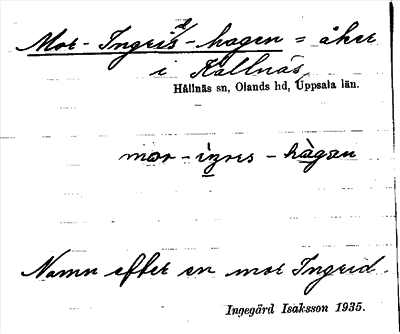 Mor-Ingrids-hagen = åker
i Kallnäs,
Hållnäs sn, Olands hd, Uppsala län.
mor - iŋris - hàgan
Namn efter en mor Ingrid.
Ingegärd Isaksson 1935.